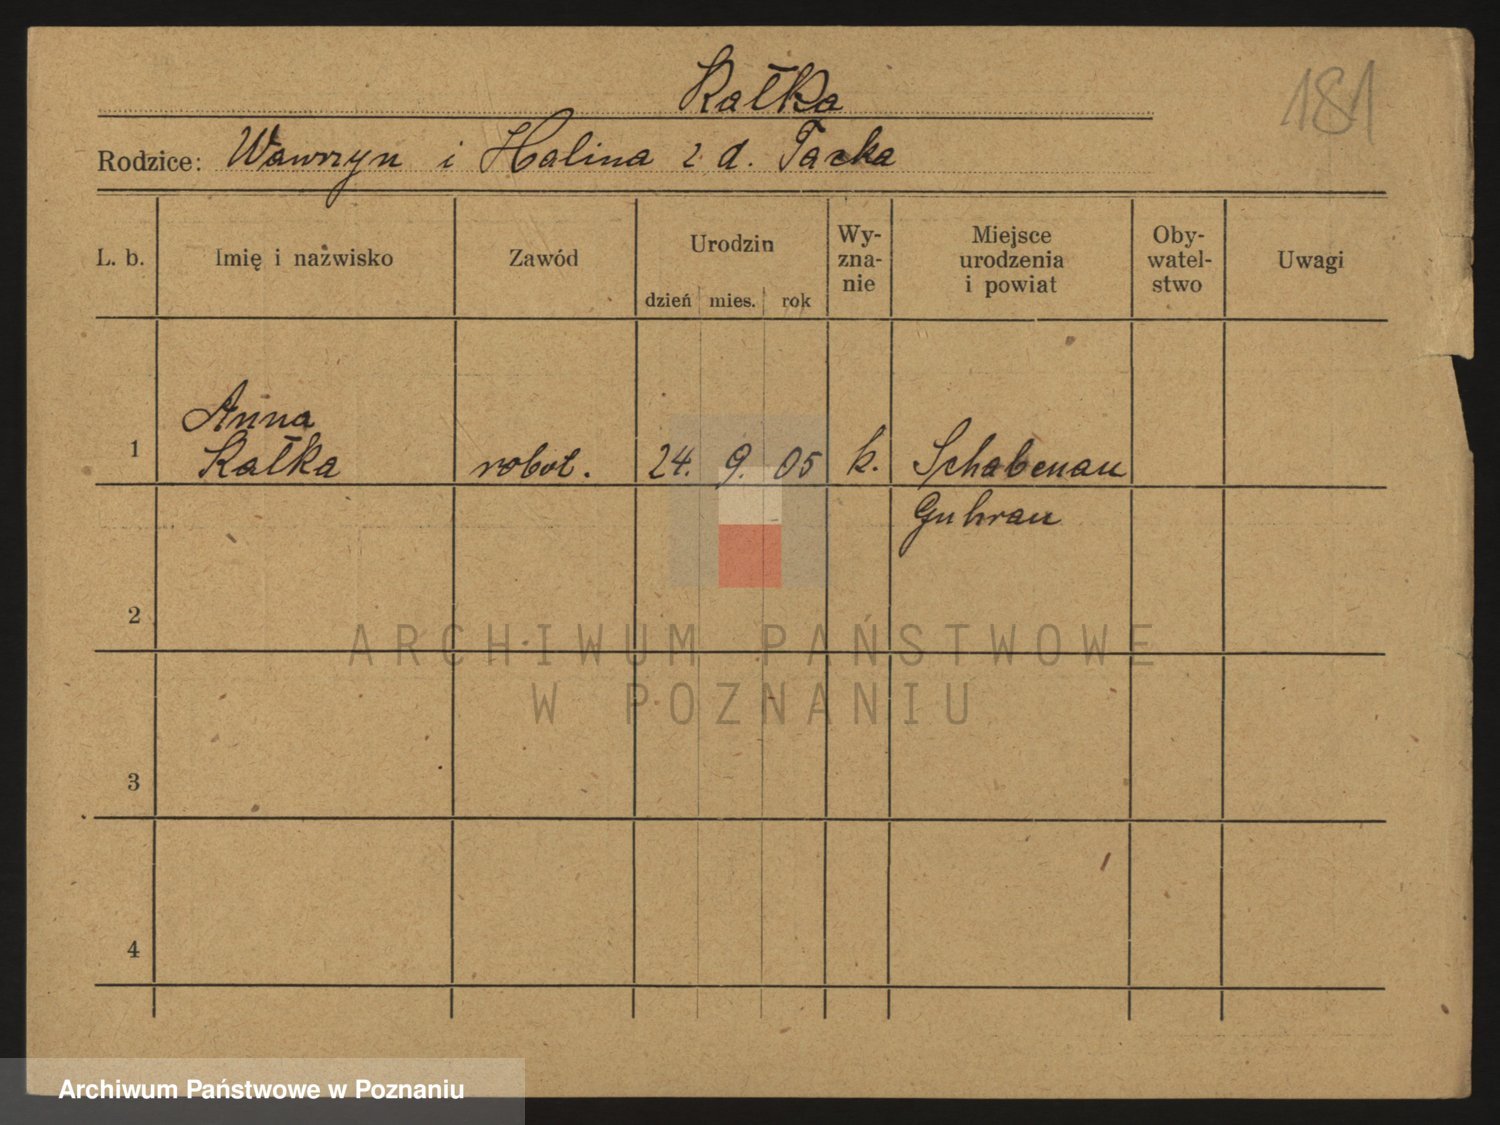 Kałka
181
Rodzice: Wawrzyn i Halina z d. Tacka
L. b. Imię i nazwisko Zawód Urodzin dzień mies. rok Wy-zna-nie Miejsce urodzenia i powiat Oby-watel-stwo Uwagi
Anna
1 Kałka robot. 24. 9. 05 k. Schabenau
Guhrau
2
ARCHIWUM PAŃSTWOWE
W POZNANIU
3
4
Archiwum Państwowe w Poznaniu